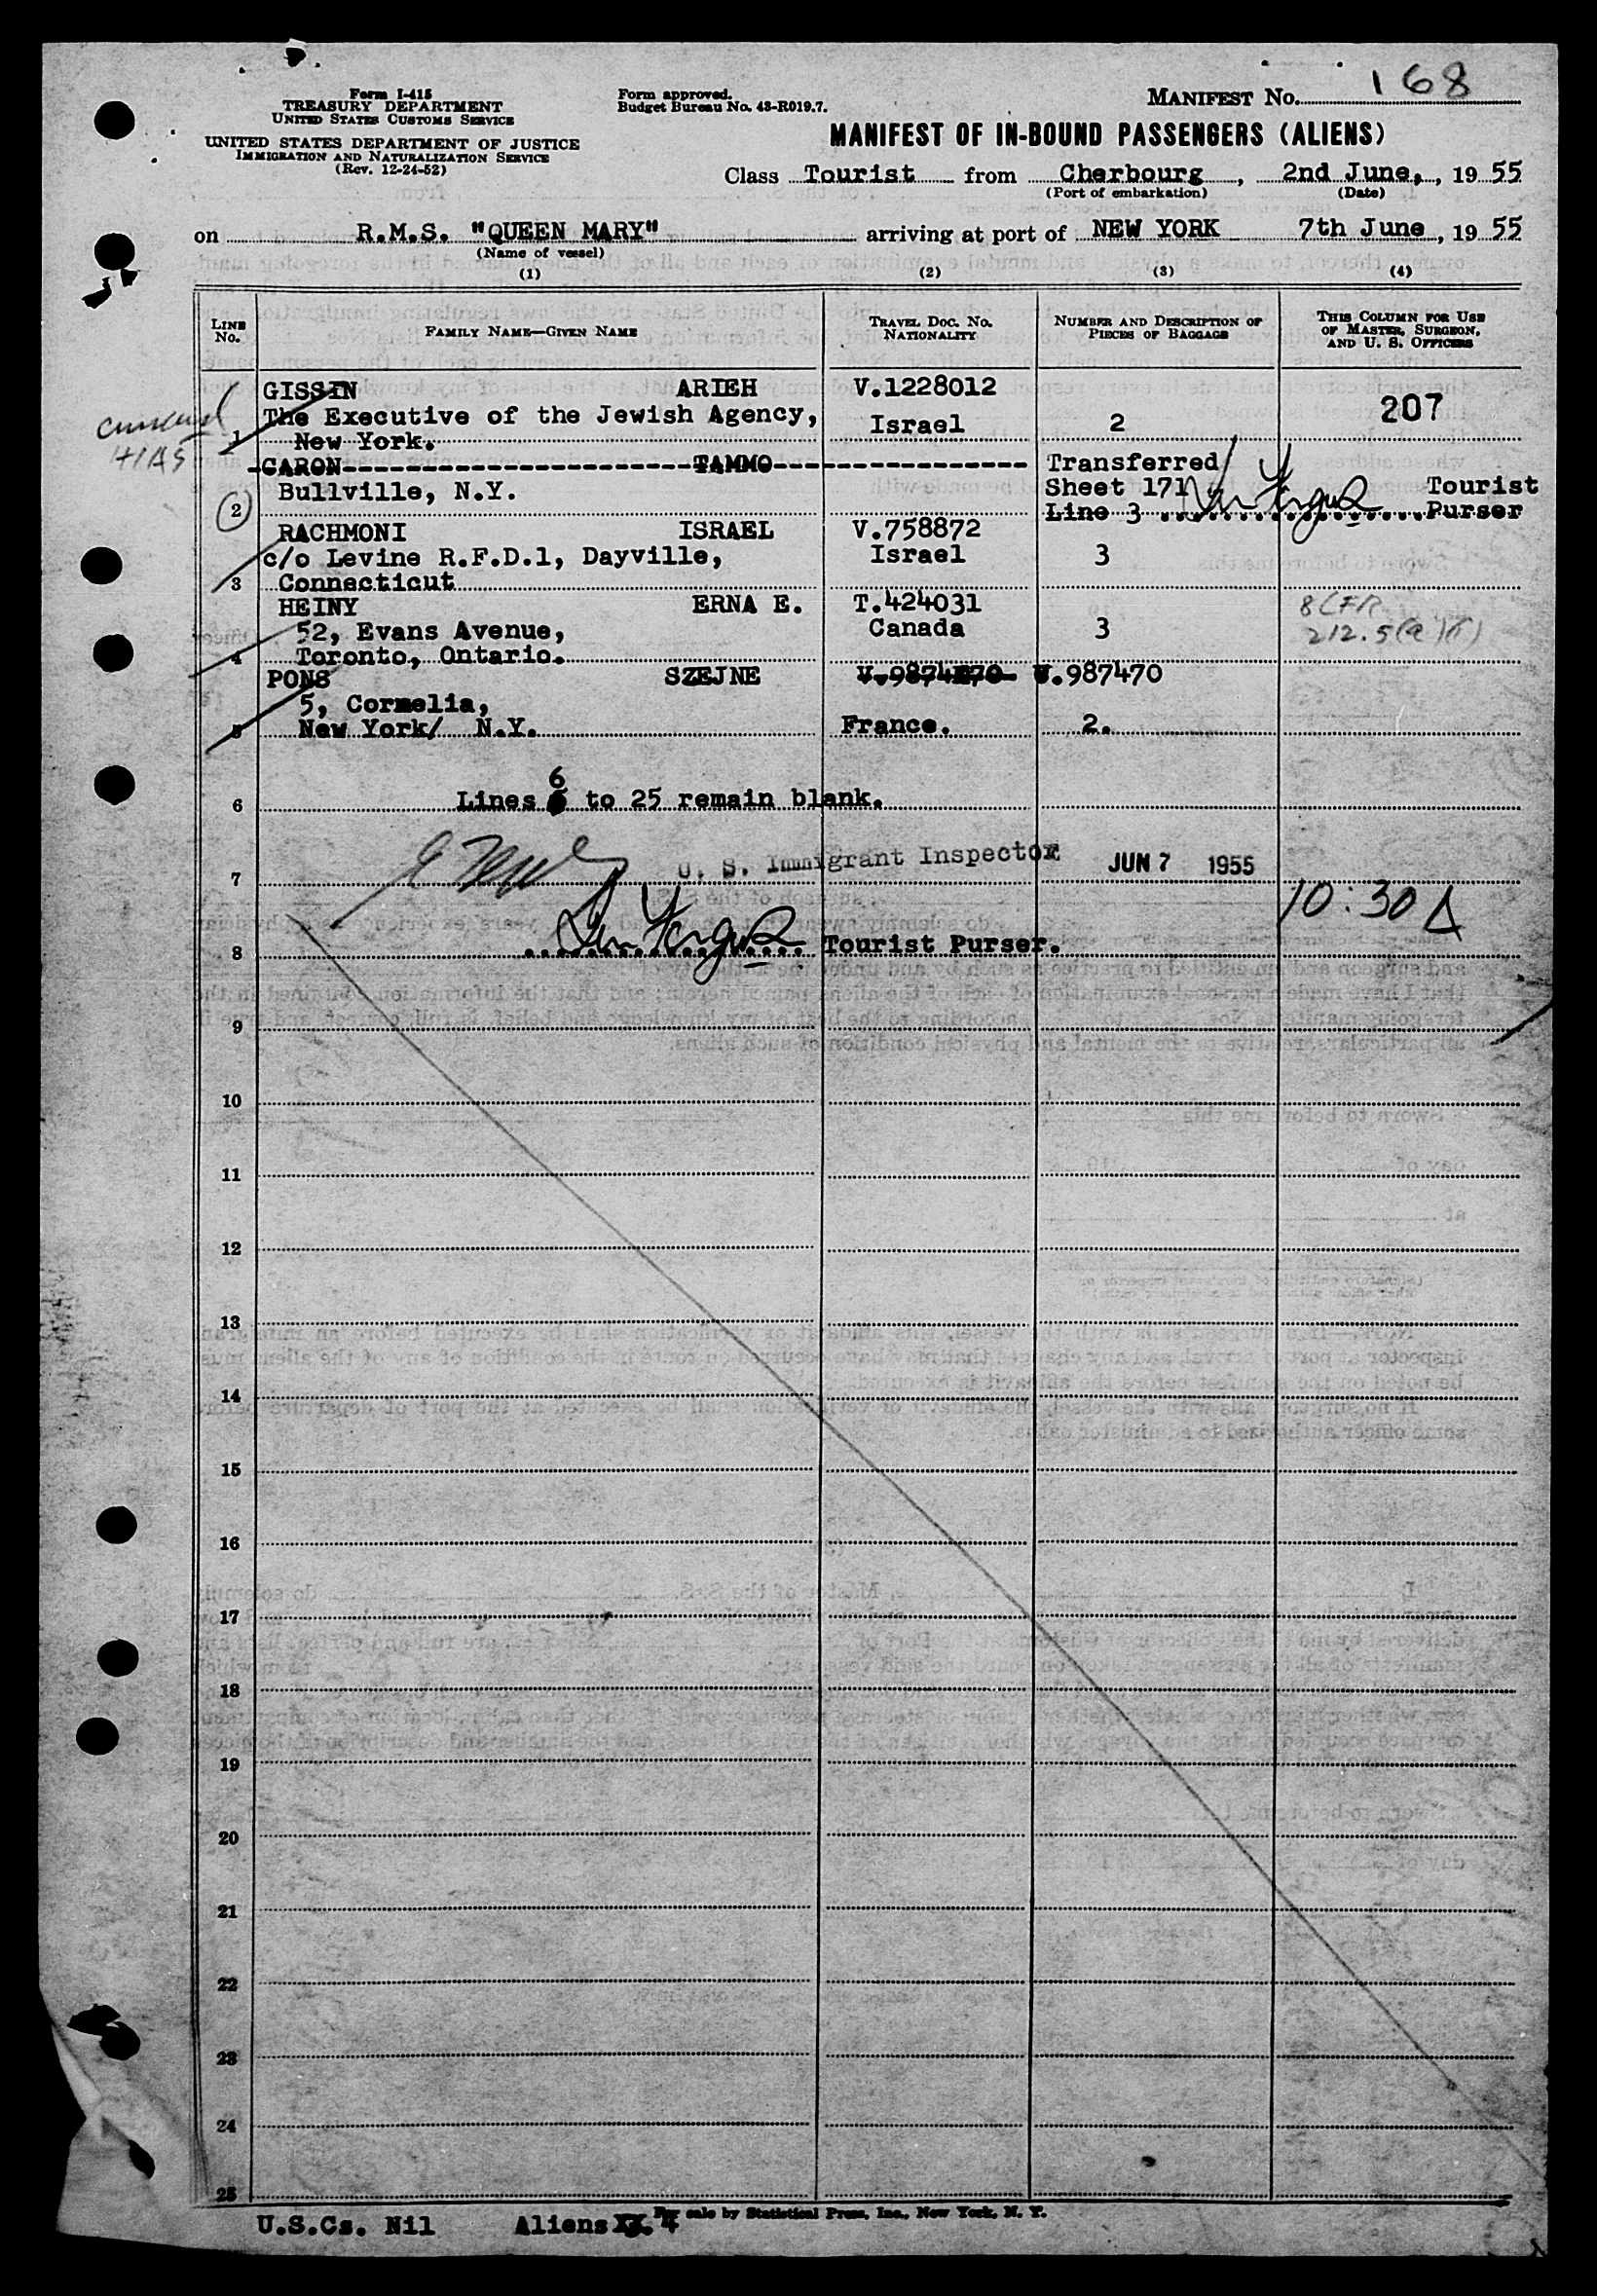 Form I-415
TREASURY DEPARTMENT
UNITED STATES CUSTOMS SERVICE
UNITED STATES DEPARTMENT OF JUSTICE
IMMIGRATION AND NATURALIZATION SERVICE
(Rev. 12-24-52)
Form approved.
Budget Bureau No. 43-R019.7.
MANIFEST No. 168
MANIFEST OF IN-BOUND PASSENGERS (ALIENS)
Class Tourist from Cherbourg, 2nd June, 1955
(Port of embarkation) (Date)
on R.M.S. "QUEEN MARY" arriving at port of NEW YORK 7th June, 1955
(Name of vessel)
(1) (2) (3) (4)
LINE No. FAMILY NAME—GIVEN NAME TRAVEL DOC. NO. NATIONALITY NUMBER AND DESCRIPTION OF PIECES OF BAGGAGE THIS COLUMN FOR USE OF MASTER, SURGEON, AND U. S. OFFICERS
GISSIN ARIEH V.1228012
The Executive of the Jewish Agency, Israel 2 207
1 New York.
HIAS
CARON TAMMO Transferred
Bullville, N.Y. Sheet 171 Tourist
2 Line 3 Purser
RACHMONI ISRAEL V.758872
c/o Levine R.F.D.1, Dayville, Israel 3
3 Connecticut
HEINY ERNA E. T.424031 8 CFR
52, Evans Avenue, Canada 3 212.5(a)
4 Toronto, Ontario.
PONS SZEJNE V.987470
5, Cormelia,
5 New York/ N.Y. France. 2.
6 Lines 6 to 25 remain blank.
7 U. S. Immigrant Inspector JUN 7 1955
10:30 A
8 Tourist Purser.
9
10
11
12
13
14
15
16
17
18
19
20
21
22
23
24
25
For sale by Statistical Press, Inc., New York, N. Y.
U.S.Cs. Nil Aliens 4